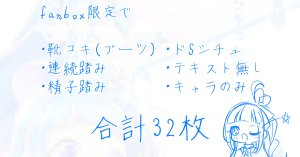 fanbox限定で
・靴コキ(ブーツ)
・連続踏み
・精子踏み
・ドSシチュ
・テキスト無し
・キャラのみ
合計32枚